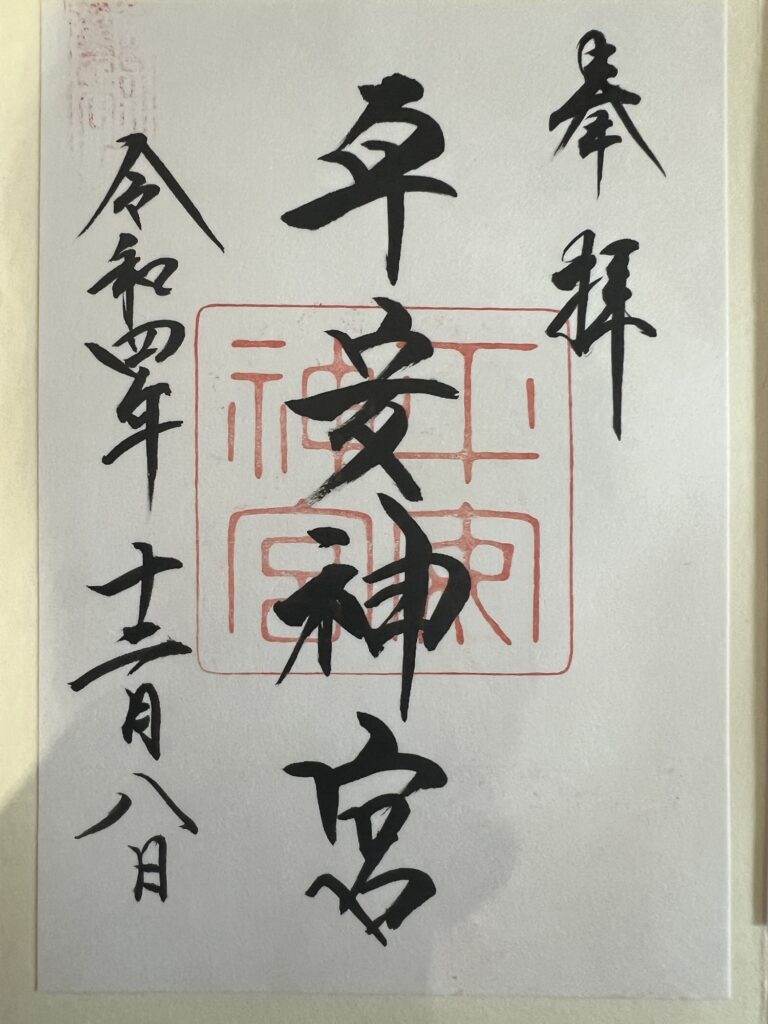 奉拝
平安神宮
令和四年十二月八日
平安
神宮